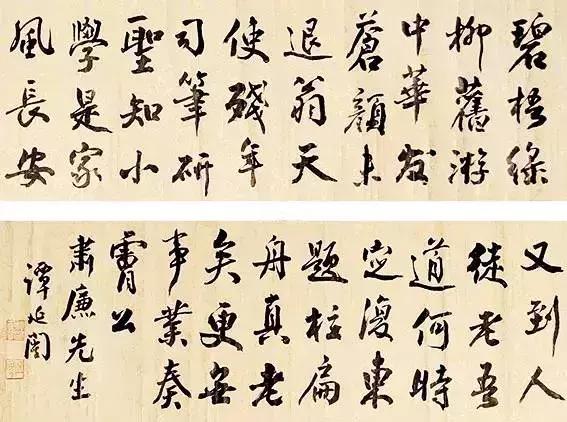 碧梧綠
柳舊游
中華发
蒼顔未
退翁天
使殘年
司筆研
聖知小
學是家
風長安
又到人
徒老吾
道何時
定復東
題柱扁
舟真老
矣更無
事業奏
膚公
肅廉先生
譚延闓